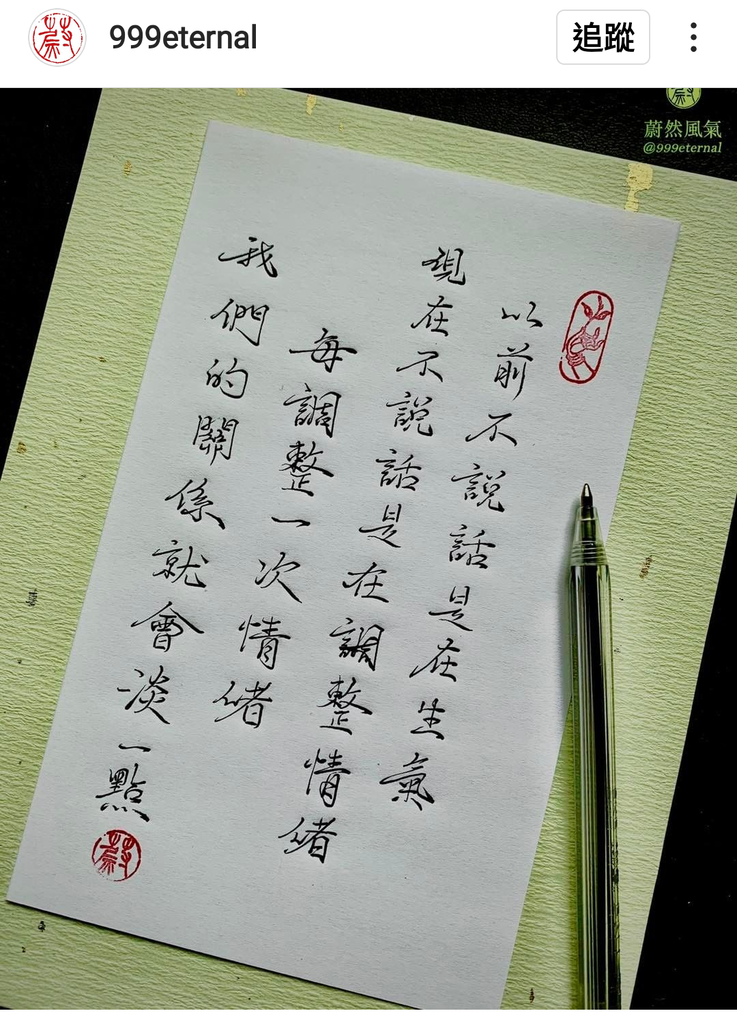 999eternal
追蹤
蔚然風氣
@999eternal
以前不說話是在生氣
現在不說話是在調整情緒
每調整一次情緒
我們的關係就會淡一點
蔚